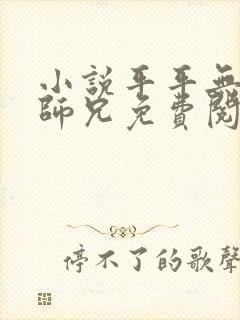 小説平平無
師兄免費閱
停不了的歌聲